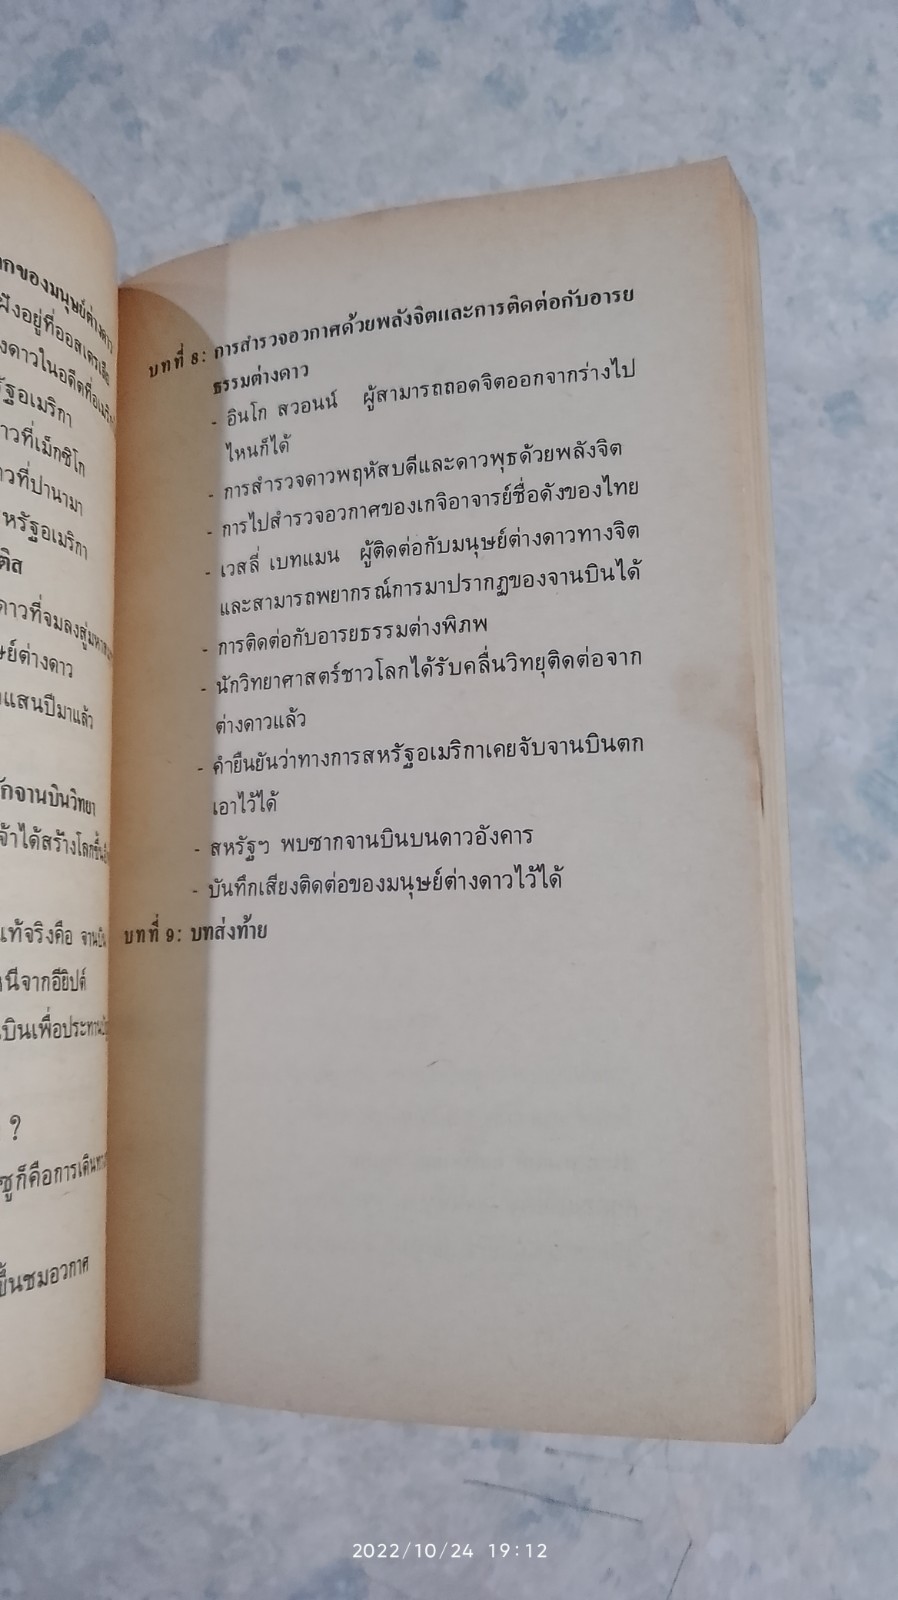 กของมนุษย์ต่างดาว
ฝังอยู่ที่ออสเตรเลีย
งดาวในอดีตที่อเมริกา
รัฐอเมริกา
าวที่เม็กซิโก
าวที่ปานามา
หรัฐอเมริกา
ติส
ดาวที่จมลงสู่มหา
ษย์ต่างดาว
แสนปีมาแล้ว
ักจานบินวิทยา
จ้าได้สร้างโลกขึ้น
แท้จริงคือ จานบิน
หนีจากอียิปต์
บินเพื่อประทาน
?
ซูก็คือการเดินทาง
ขึ้นชมอวกาศ
บทที่ 8: การสำรวจอวกาศด้วยพลังจิตและการติดต่อกับอารย
ธรรมต่างดาว
- อินโก สวอนน์ ผู้สามารถถอดจิตออกจากร่างไป
ไหนก็ได้
- การสำรวจดาวพฤหัสบดีและดาวพุธด้วยพลังจิต
- การไปสำรวจอวกาศของเกจิอาจารย์ชื่อดังของไทย
- เวสลี่ เบทแมน ผู้ติดต่อกับมนุษย์ต่างดาวทางจิต
และสามารถพยากรณ์การมาปรากฏของจานบินได้
- การติดต่อกับอารยธรรมต่างพิภพ
- นักวิทยาศาสตร์ชาวโลกได้รับคลื่นวิทยุติดต่อจาก
ต่างดาวแล้ว
- คำยืนยันว่าทางการสหรัฐอเมริกาเคยจับจานบินตก
เอาไว้ได้
- สหรัฐฯ พบซากจานบินบนดาวอังคาร
- บันทึกเสียงติดต่อของมนุษย์ต่างดาวไว้ได้
บทที่ 9: บทส่งท้าย
2022/10/24 19:12